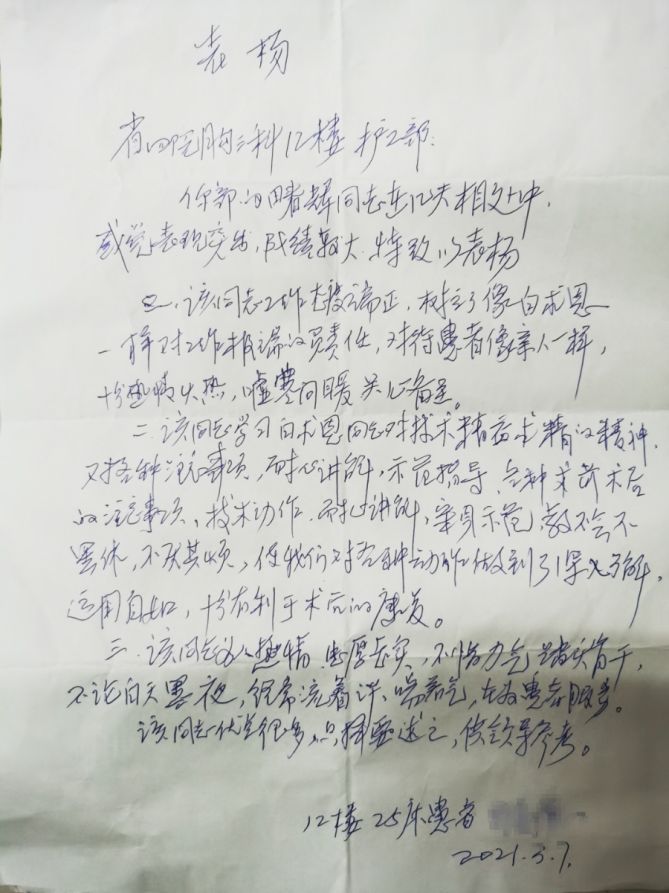 表扬
省四院胸三科12楼护工部:
你部的田春辉同志在几天相处中,
感觉表现突出,成绩较大.特致以表扬
一.该同志工作态度端正,树立了像白求恩
一样对工作极端的负责任,对待患者像亲人一样,
十分热情火热,嘘寒问暖关心备至。
二.该同志学习白求恩同志对技术精益求精的精神.
对各种注意事项,耐心讲解,示范指导.各种术前术后
的注意事项、技术动作.耐心讲解,亲身示范,教不会不
罢休,不厌其烦,使我们对各种动作做到了理解,
运用自如,十分有利于术后的康复。
三.该同志为人热情.忠厚老实,不惜力气踏实肯干,
不论白天黑夜,经常流着汗、喘着气,在为患者服务。
该同志优点很多,只择要述之,供领导参考。
12楼25床患者
2021.5.7.